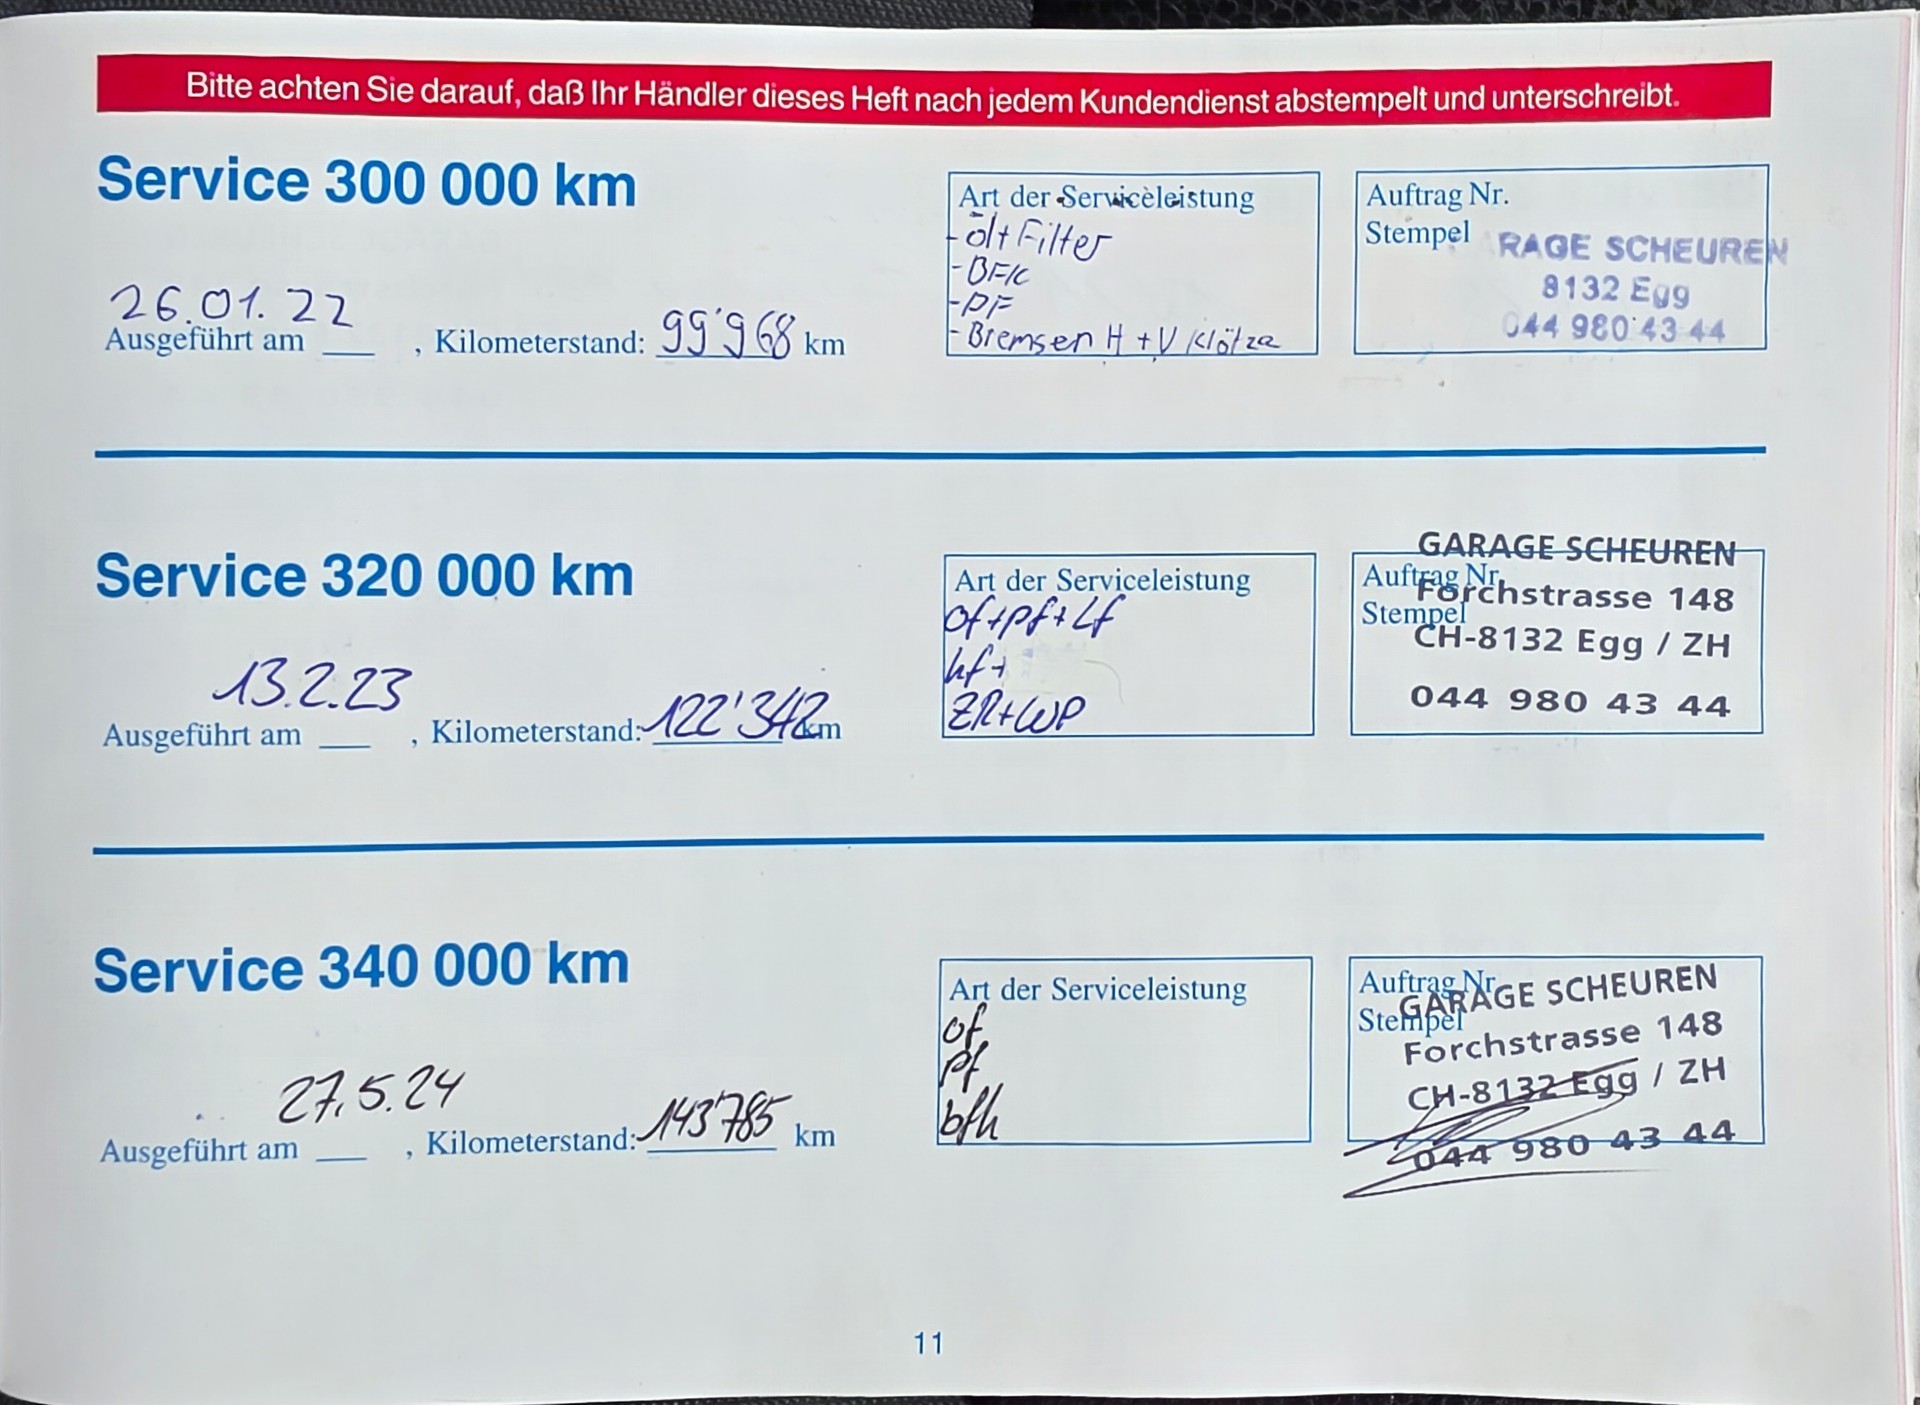 Bitte achten Sie darauf, daß Ihr Händler dieses Heft nach jedem Kundendienst abstempelt und unterschreibt.
Service 300 000 km
26.01.22
Ausgeführt am ___ , Kilometerstand: 99'968 km
Art der Serviceleistung
- öl+Filter
- BFK
- PF
- Bremsen H + V Klötze
Auftrag Nr.
Stempel
RAGE SCHEUREN
8132 Egg
044 980 43 44
Service 320 000 km
13.2.23
Ausgeführt am ___ , Kilometerstand: 122'342 km
Art der Serviceleistung
of+pf+Lf
hf+
ZR+WP
Auftrag Nr.
Stempel
GARAGE SCHEUREN
Forchstrasse 148
CH-8132 Egg / ZH
044 980 43 44
Service 340 000 km
27.5.24
Ausgeführt am ___ , Kilometerstand: 143'785 km
Art der Serviceleistung
of
pf
bfh
Auftrag Nr.
Stempel
GARAGE SCHEUREN
Forchstrasse 148
CH-8132 Egg / ZH
044 980 43 44
11